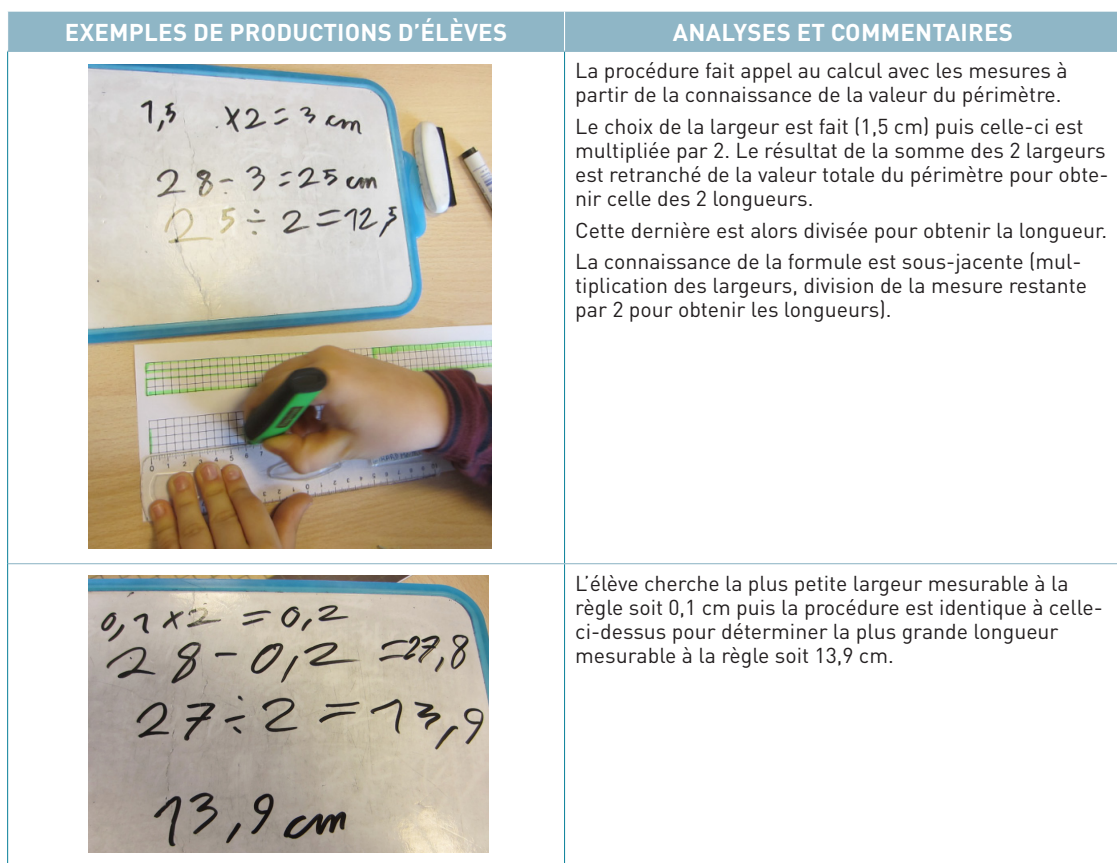 EXEMPLES DE PRODUCTIONS D'ÉLÈVES
ANALYSES ET COMMENTAIRES
1,5 ×2 = 3 cm
28 - 3 = 25 cm
25 ÷ 2 = 12,5
La procédure fait appel au calcul avec les mesures à
partir de la connaissance de la valeur du périmètre.
Le choix de la largeur est fait (1,5 cm) puis celle-ci est
multipliée par 2. Le résultat de la somme des 2 largeurs
est retranché de la valeur totale du périmètre pour obte-
nir celle des 2 longueurs.
Cette dernière est alors divisée pour obtenir la longueur.
La connaissance de la formule est sous-jacente (mul-
tiplication des largeurs, division de la mesure restante
par 2 pour obtenir les longueurs).
0,1 ×2 = 0,2
28 - 0,2 = 27,8
27 ÷ 2 = 13,9
13,9 cm
L'élève cherche la plus petite largeur mesurable à la
règle soit 0,1 cm puis la procédure est identique à celle-
ci-dessus pour déterminer la plus grande longueur
mesurable à la règle soit 13,9 cm.